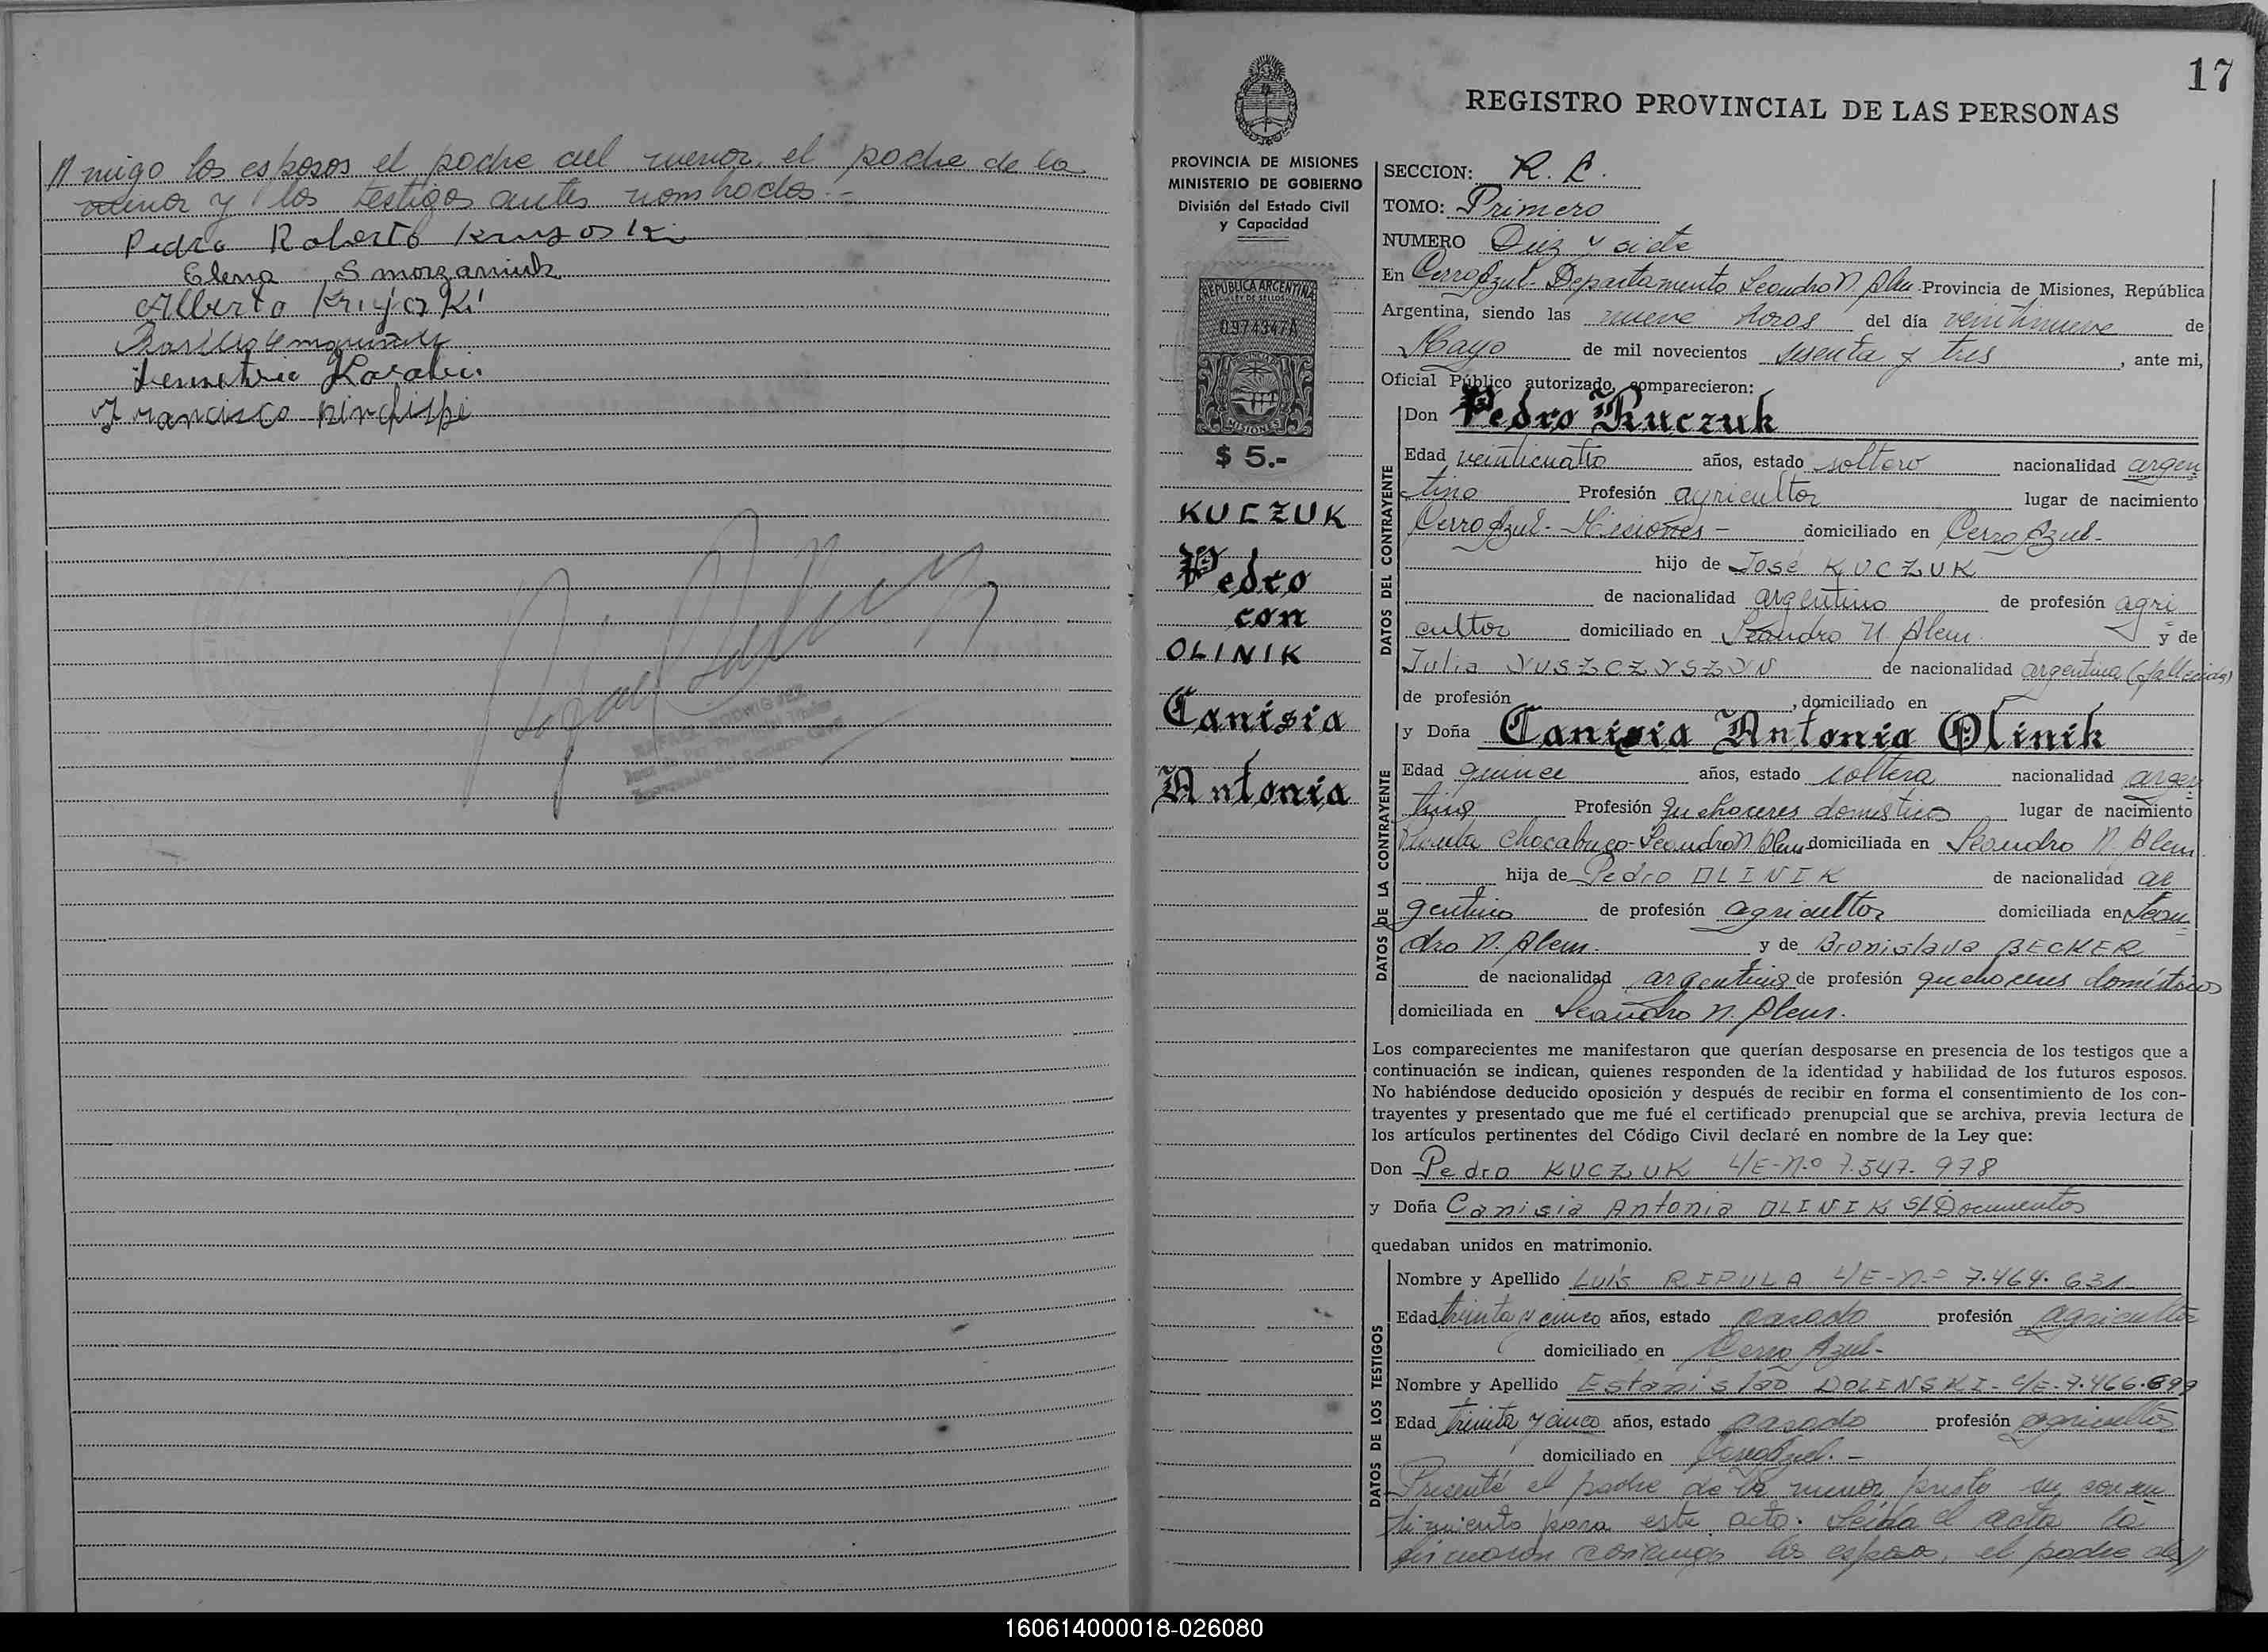 migo los esposos el padre del menor, el padre de la
menor y los testigos antes nombrados.-
Pedro Roberto
Elena Smorzaniuk
Alberto Kriyoski
Basilio
Demetrio
Francisco
17
REGISTRO PROVINCIAL DE LAS PERSONAS
PROVINCIA DE MISIONES
MINISTERIO DE GOBIERNO
División del Estado Civil
y Capacidad
REPUBLICA ARGENTINA
LEY DE SELLOS
0974347A
PROVINCIA DE
MISIONES
$ 5.-
KUCZUK
Pedro
con
OLINIK
Canisia
Antonia
SECCION: R. C.
TOMO: Primero
NUMERO Diez y siete
En Cerro Azul- Departamento Leandro N. Alem Provincia de Misiones, República
Argentina, siendo las nueve horas del día veintinueve de
Mayo de mil novecientos sesenta y tres, ante mi,
Oficial Público autorizado, comparecieron:
DATOS DEL CONTRAYENTE
Don Pedro Kuczuk
Edad veinticuatro años, estado soltero nacionalidad argen
tino Profesión agricultor lugar de nacimiento
Cerro Azul- Misiones - domiciliado en Cerro Azul-
hijo de José KUCZUK
de nacionalidad argentino de profesión agri
cultor domiciliado en Leandro N. Alem. y de
Julia YUSZCZYSZYN de nacionalidad argentina (fallecida)
de profesión , domiciliado en
DATOS DE LA CONTRAYENTE
y Doña Canisia Antonia Olinik
Edad quince años, estado soltera nacionalidad argen
tina Profesión quehaceres domesticos lugar de nacimiento
Picada Chacabuco-Leandro N. Alem domiciliada en Leandro N. Alem.
hija de Pedro OLINIK de nacionalidad ar
gentino de profesión agricultor domiciliada en Lean
dro N. Alem. y de Bronislava BECKER
de nacionalidad argentina de profesión quehaceres domésticos
domiciliada en Leandro N. Alem.
Los comparecientes me manifestaron que querían desposarse en presencia de los testigos que a
continuación se indican, quienes responden de la identidad y habilidad de los futuros esposos.
No habiéndose deducido oposición y después de recibir en forma el consentimiento de los con-
trayentes y presentado que me fué el certificado prenupcial que se archiva, previa lectura de
los artículos pertinentes del Código Civil declaré en nombre de la Ley que:
Don Pedro KUCZUK L/E-N.º 7.547.978
y Doña Canisia Antonia OLINIK S/Documentos
quedaban unidos en matrimonio.
DATOS DE LOS TESTIGOS
Nombre y Apellido Luis RIPULA L/E-N.º 7.464.631
Edad treinta y cinco años, estado casado profesión agricultor
domiciliado en Cerro Azul-
Nombre y Apellido Estanislao DOLINSKI- L/E-7.466.699
Edad treinta y cinco años, estado casado profesión agricultor
domiciliado en Cerro Azul. -
Presente el padre de la menor presta su consen
timiento para este acto. Leída el acta la
firmaron conmigo los esposos, el padre de//
160614000018-026080